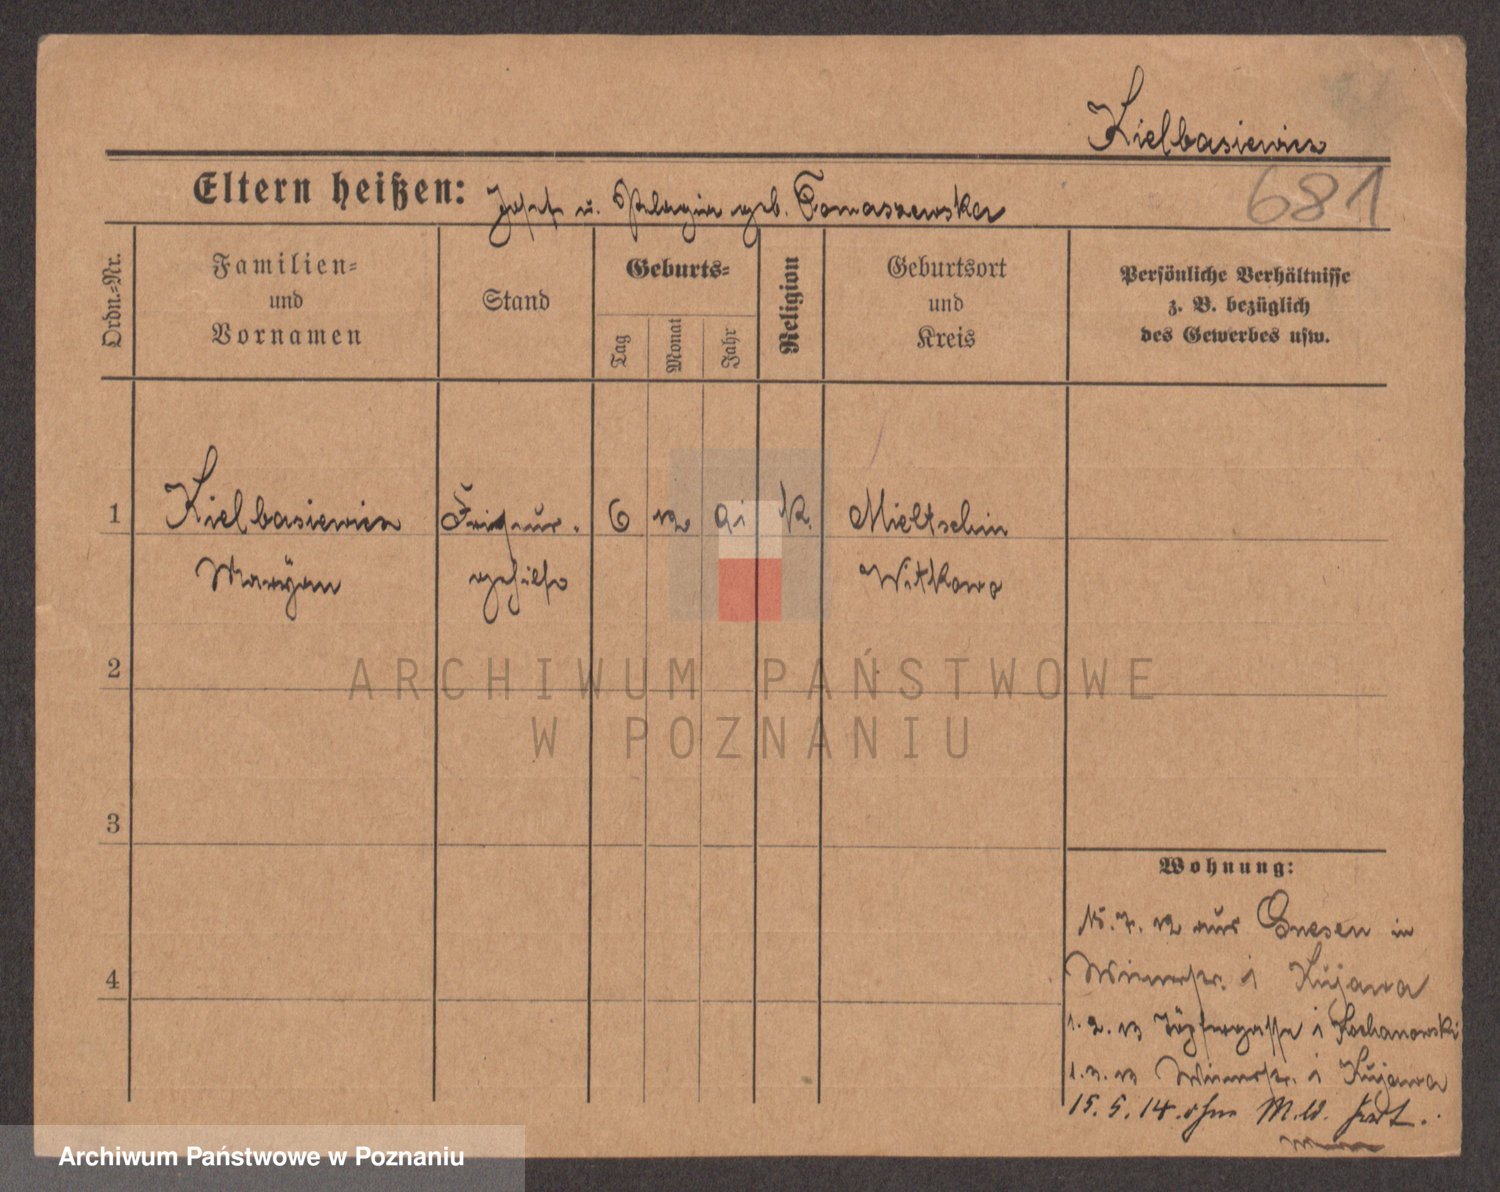 Kielbasiewicz
681
Eltern heißen: Josef u. Pelagia geb. Tomaszewska
Ordn.-Nr.
Familien-
und
Vornamen
Stand
Geburts-
Tag
Monat
Jahr
Religion
Geburtsort
und
Kreis
Persönliche Verhältnisse
z. B. bezüglich
des Gewerbes usw.
1 Kielbasiewicz Friseur- 6 12 91 K. Mieltschin
Maryan gehilfe Witkowo
2
3
4
Wohnung:
15. 7. 12 aus Gnesen in
1 Kujawa
1. 2. 13 Töpfergasse 1 Kochanowski
13 1 Kujawa
15. 5. 14. ohne Meld. fort.
ARCHIWUM PAŃSTWOWE
W POZNANIU
Archiwum Państwowe w Poznaniu